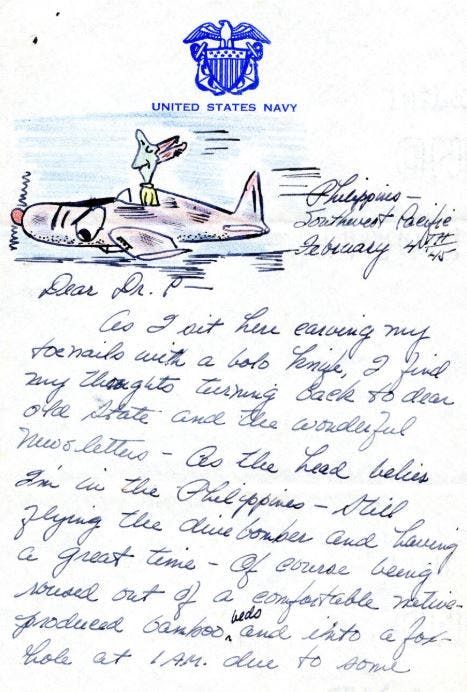 UNITED STATES NAVY
Philippines
Southwest Pacific
February 4TH 45
Dear Dr. P—
As I sit here carving my
toenails with a bolo knife, I find
my thoughts turning back to dear
old State and the wonderful
Newsletters – As the head belies
I'm in the Philippines – still
flying the dive bomber and having
a great time – Of course being
roused out of a comfortable native-
produced bamboo beds and into a fox-
hole at 1 AM. due to some